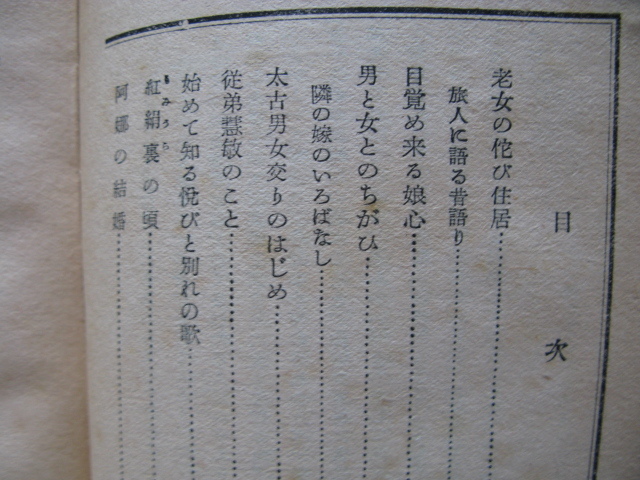 目次
老女の侘び住居
旅人に語る昔語り
目覚め来る娘心
男と女とのちがひ
隣の嫁のいろばなし
太古男女交りのはじめ
従弟慧敏のこと
始めて知る悦びと別れの歌
紅絹裏の頃
もみうら
阿娜の結婚